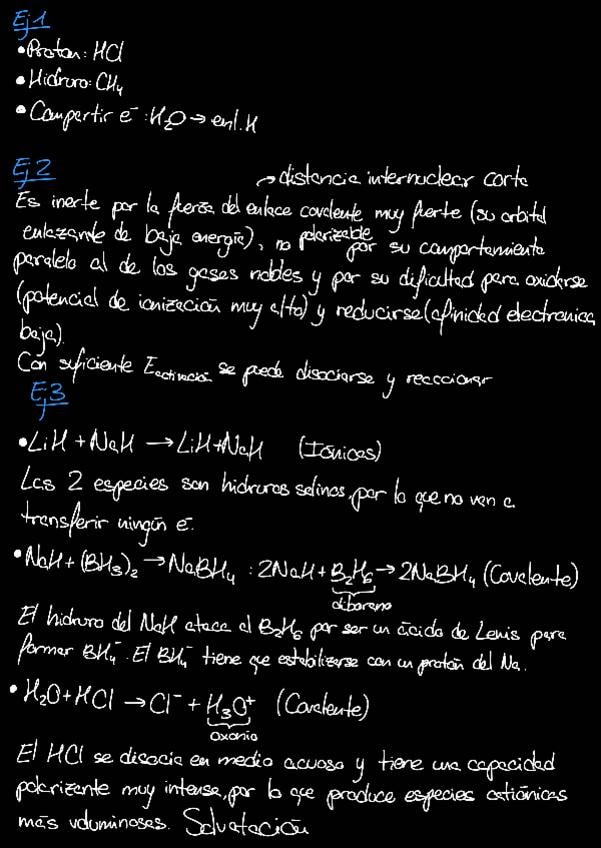 Ej 1
• Proton: HCl
• Hidruro: CH₄
• Compartir e⁻: H₂O → enl. H
Ej 2
→ distancia internuclear corta
Es inerte por la fuerza del enlace covalente muy fuerte (su orbital
enlazante de baja energía), no polarizable por su comportamiento
paralelo al de los gases nobles y por su dificultad para oxidarse
(potencial de ionización muy alto) y reducirse (afinidad electronica
baja).
Con suficiente Eactivación se puede disociarse y reaccionar
Ej 3
• LiH + NaH → LiH + NaH (Iónicos)
Las 2 especies son hidruros salinos, por lo que no van a
transferir ningún e⁻.
• NaH + (BH₃)₂ → NaBH₄ : 2NaH + B₂H₆ → 2NaBH₄ (Covalente)
diborano
El hidruro del NaH ataca al B₂H₆ por ser un ácido de Lewis para
formar BH₄⁻. El BH₄⁻ tiene que estabilizarse con un protón del Na.
• H₂O + HCl → Cl⁻ + H₃O⁺ (Covalente)
Oxonio
El HCl se disocia en medio acuoso y tiene una capacidad
polarizante muy intensa, por lo que produce especies catiónicas
más voluminosas. Solvatación